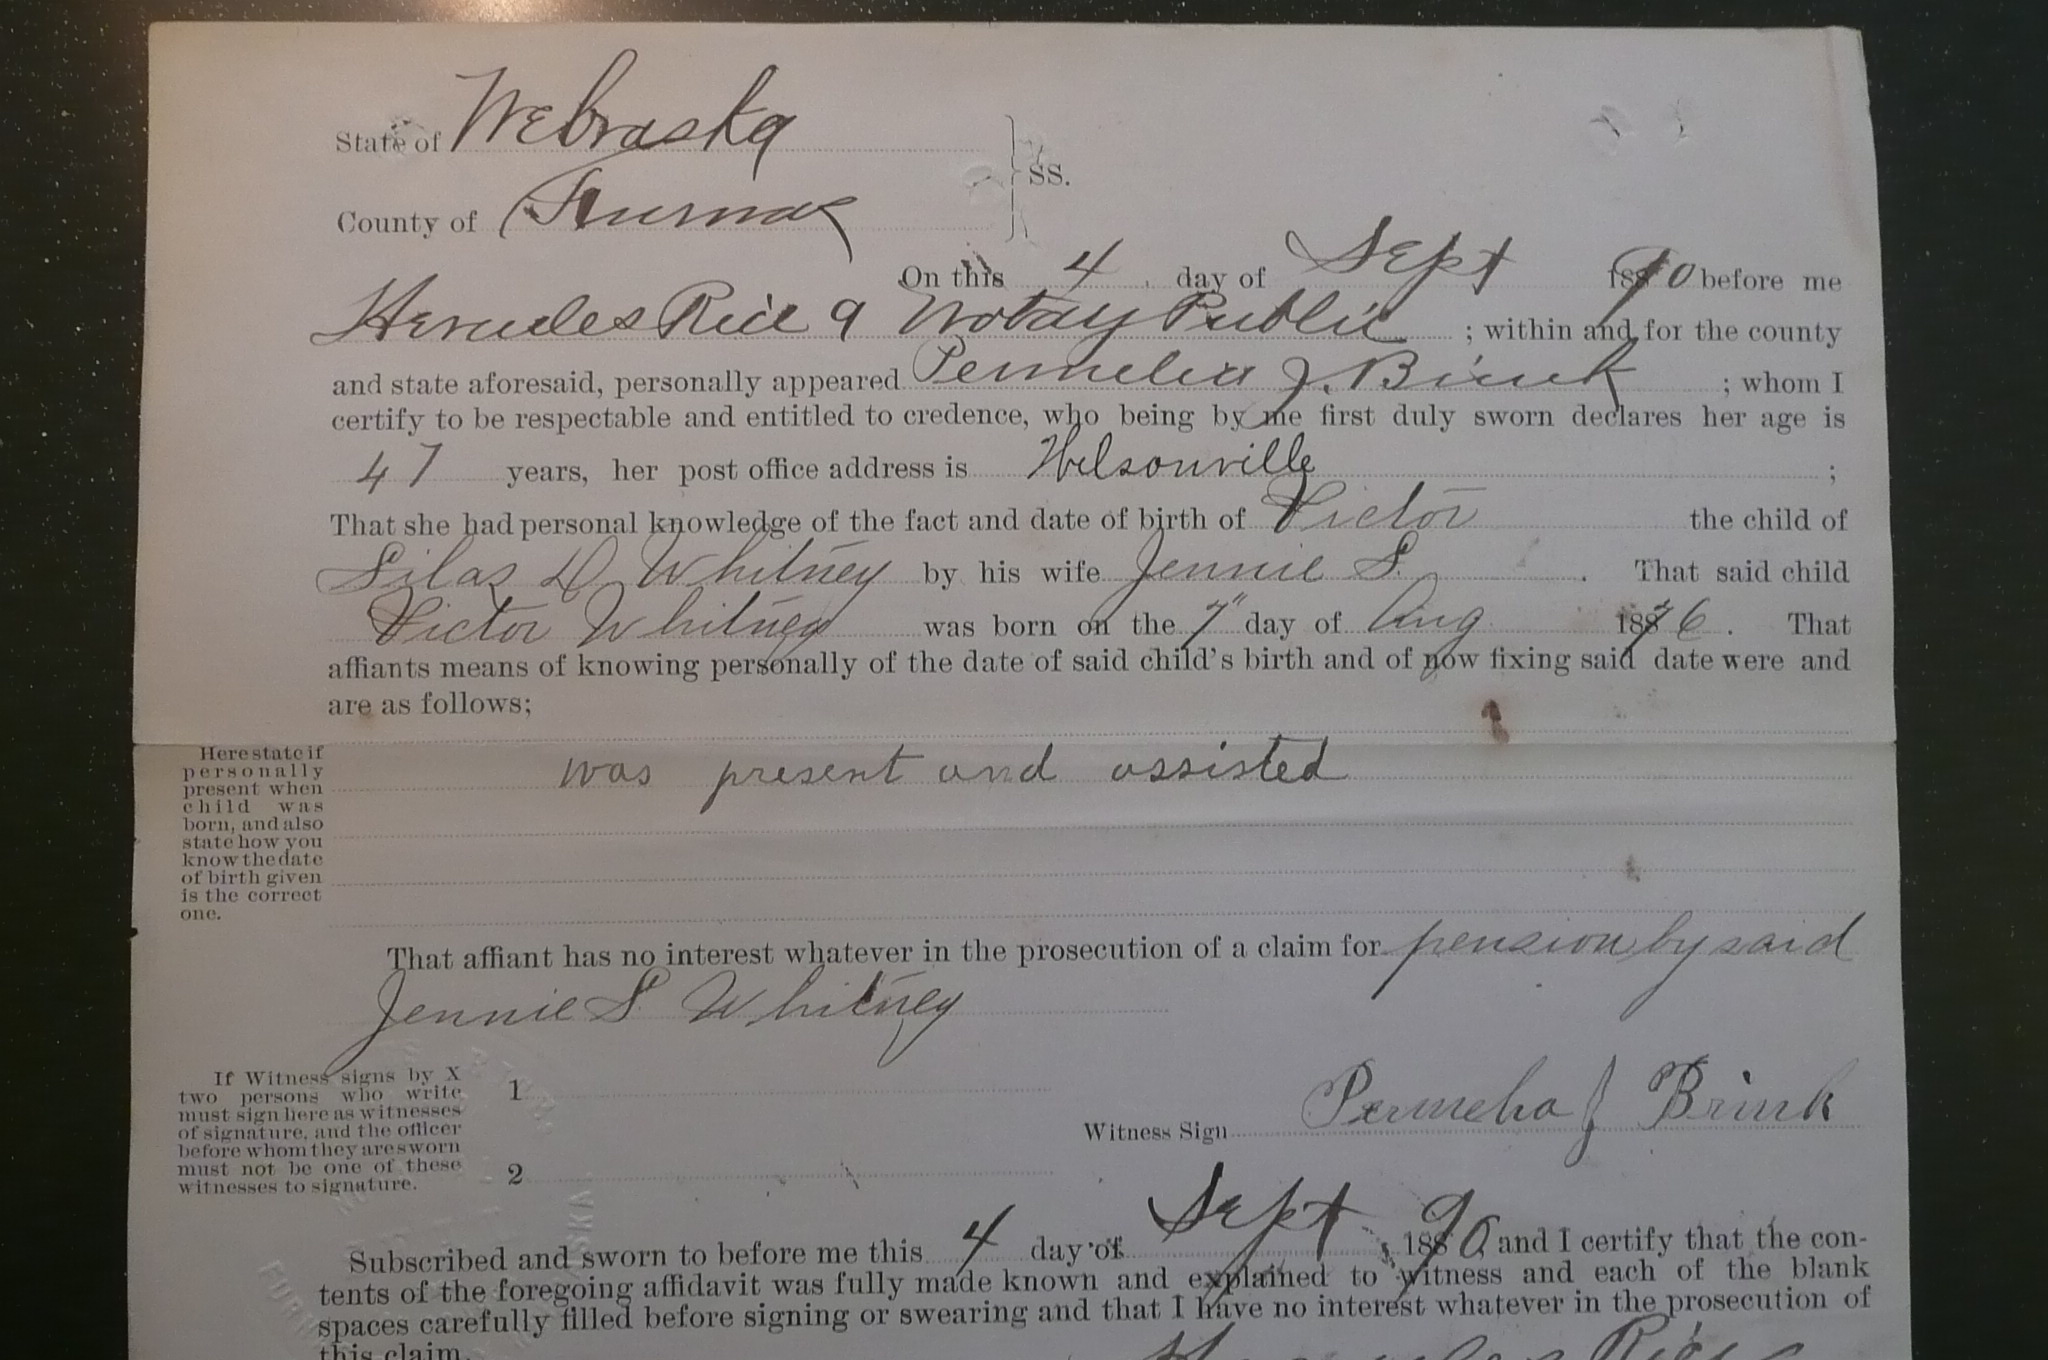 State of Nebraska
SS.
County of Furnas
On this 4 day of Sept 1890 before me
Hercules Rice a Notay Public ; within and for the county
and state aforesaid, personally appeared Permelia J. Brink ; whom I
certify to be respectable and entitled to credence, who being by me first duly sworn declares her age is
47 years, her post office address is Wilsonville ;
That she had personal knowledge of the fact and date of birth of Victor the child of
Silas D Whitney by his wife Jennie S. That said child
Victor Whitney was born on the 7" day of Aug 1876. That
affiants means of knowing personally of the date of said child's birth and of now fixing said date were and
are as follows;
Here state if
personally
present when
child was
born, and also
state how you
know the date
of birth given
is the correct
one.
was present and assisted
That affiant has no interest whatever in the prosecution of a claim for pension by said
Jennie S Whitney
If Witness signs by X
two persons who write
must sign here as witnesses
of signature, and the officer
before whom they are sworn
must not be one of these
witnesses to signature.
1
2
Witness Sign Permelia J Brink
Subscribed and sworn to before me this 4 day of Sept 1890 and I certify that the con-
tents of the foregoing affidavit was fully made known and explained to witness and each of the blank
spaces carefully filled before signing or swearing and that I have no interest whatever in the prosecution of
this claim.
Hercules Rice